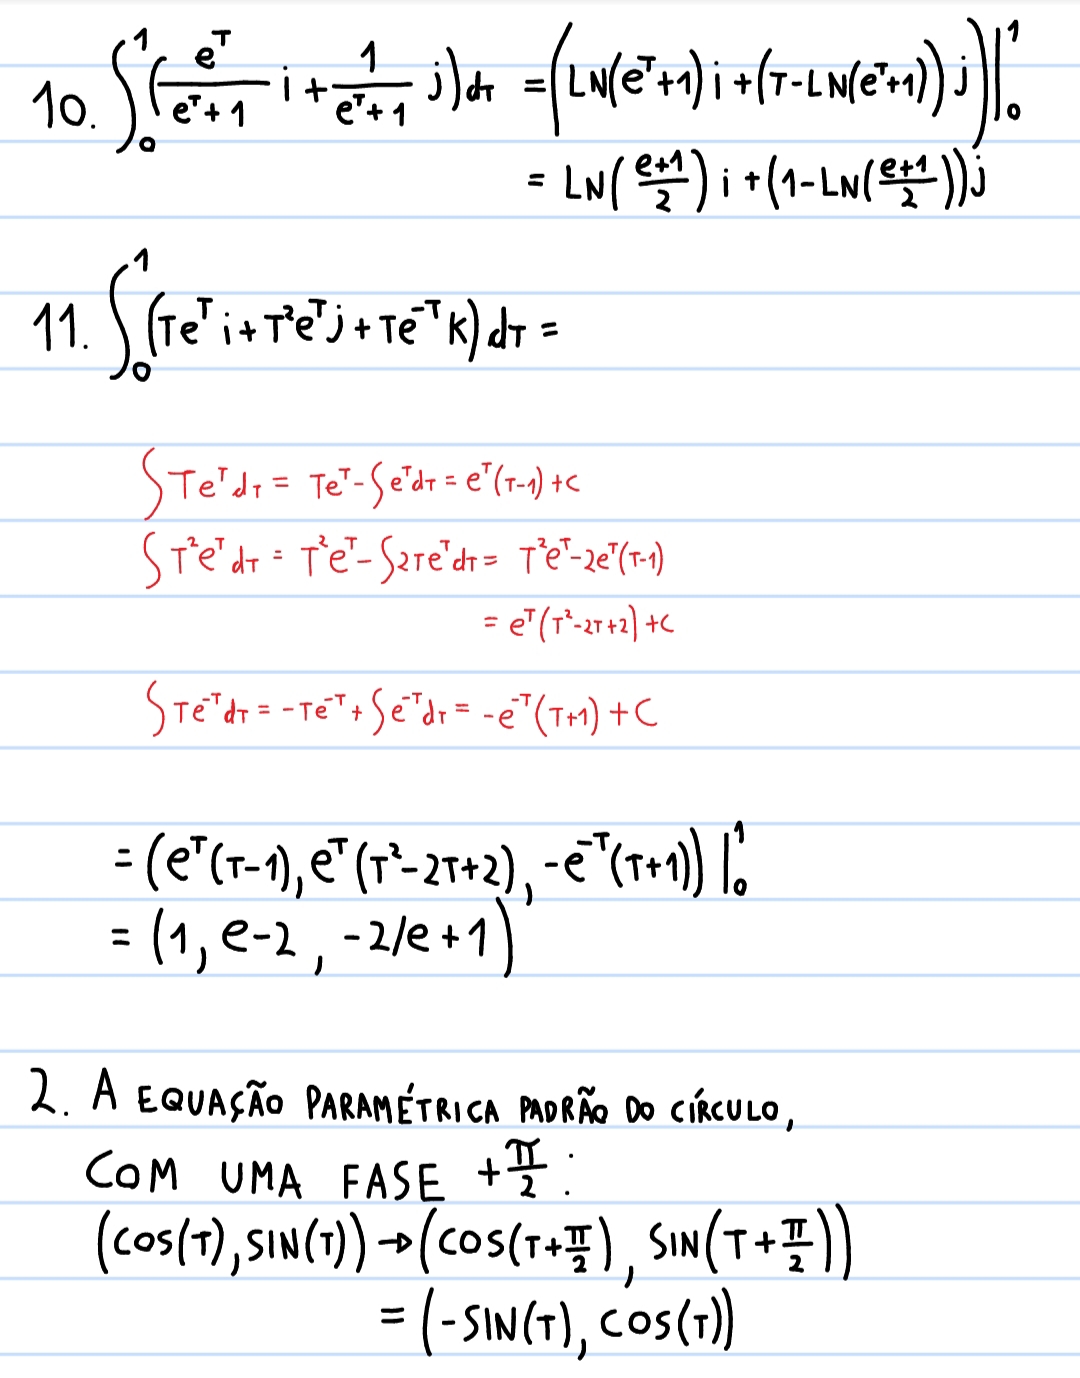 10. ∫₀¹ (e^T/(e^T+1) i + 1/(e^T+1) j) dT = (LN(e^T+1) i + (T-LN(e^T+1)) j)|₀¹
= LN((e+1)/2) i + (1-LN((e+1)/2)) j
11. ∫₀¹ (Te^T i + T²e^T j + Te^-T K) dT =
∫ Te^T dT = Te^T - ∫e^T dT = e^T(T-1) + C
∫ T²e^T dT = T²e^T - ∫2Te^T dT = T²e^T - 2e^T(T-1)
= e^T(T²-2T+2) + C
∫ Te^-T dT = -Te^-T + ∫e^-T dT = -e^-T(T+1) + C
= (e^T(T-1), e^T(T²-2T+2), -e^-T(T+1))|₀¹
= (1, e-2, -2/e+1)
2. A EQUAÇÃO PARAMÉTRICA PADRÃO DO CÍRCULO,
COM UMA FASE +π/2:
(COS(T), SIN(T)) → (COS(T+π/2), SIN(T+π/2))
= (-SIN(T), COS(T))